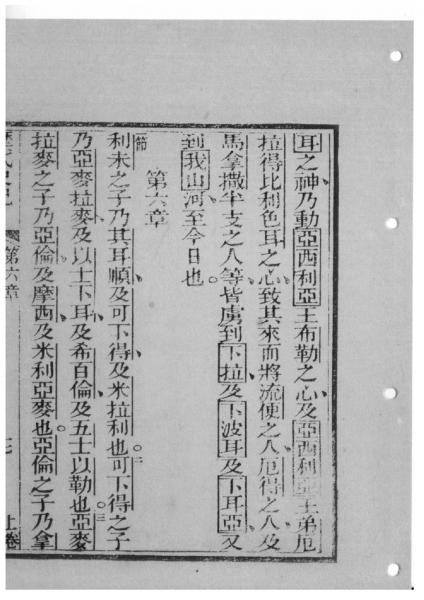 耳之神乃動亞西利亞王布勒之心及亞西利亞王弟厄
拉得比利色耳之心致其來而將流便之人厄得之人及
馬拿撒半支之人等皆虜到下拉及下波耳及下耳亞又
到我山河至今日也。
第六章
一節 利未之子乃其耳順及可下得及米拉利也。二可下得之子
乃亞麥拉麥及以士下耳及希百倫及五士以勒也。三亞麥
拉麥之子乃亞倫及摩西及米利亞麥也。亞倫之子乃拿
第六章 上卷